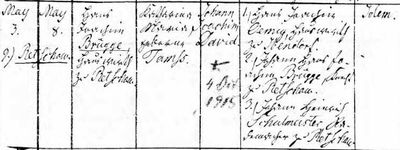 May
3.
9.) Retschow.
May
8.
Hans
Joachim
Brügge,
Hauswirth
zu Retschow.
Catharina
Maria
geborene
Tamss.
Johann
Joachim
David.
+
4 Oct
1815
1) Hans Joachim
Hauswirth
zu
2) Johann Hans Jo-
achim Brügge
zu Retschow.
3) Johann Heinrich
Schulmeister
zu Retschow.
Idem.